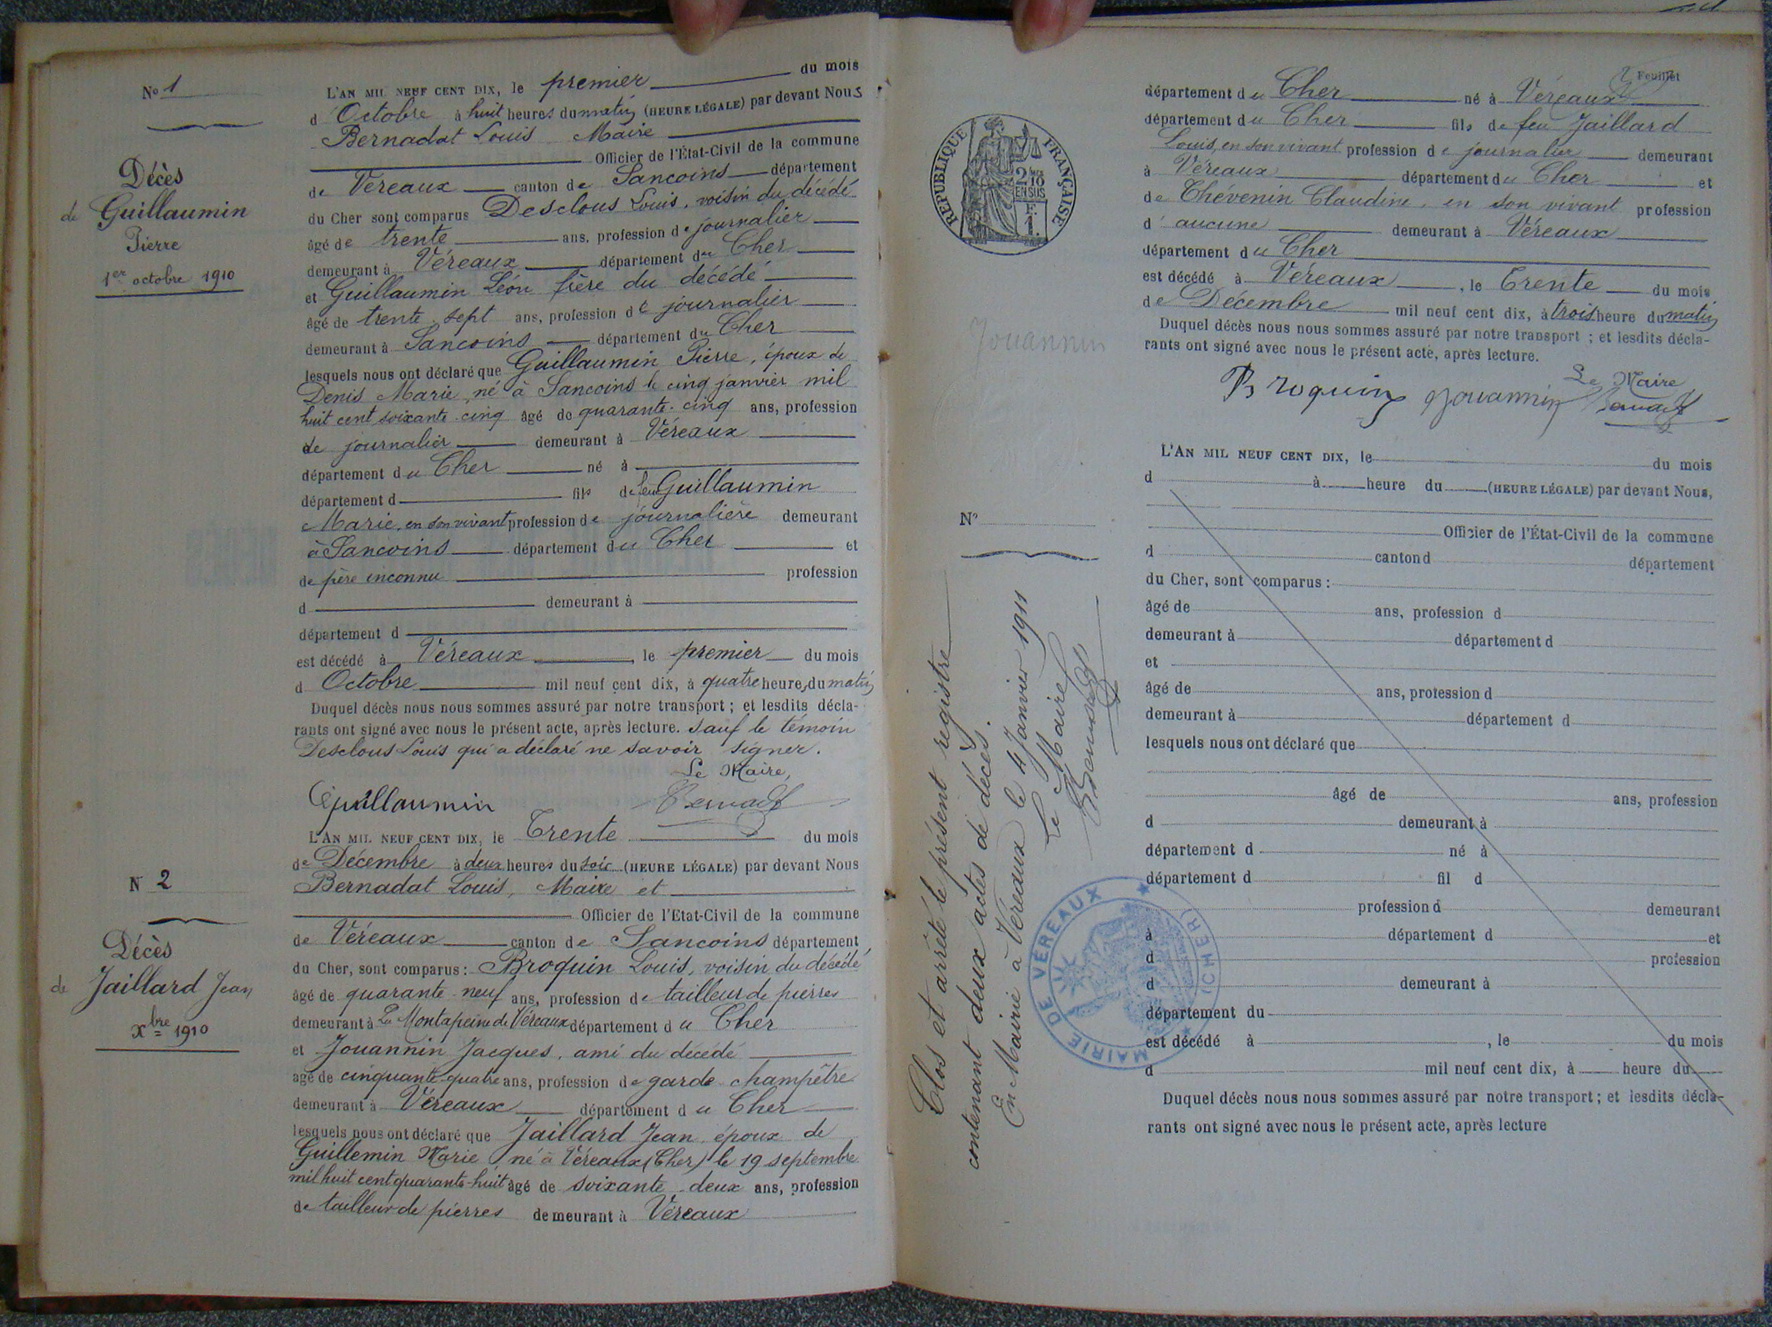 No 1
Décès
de Guillaumin
Pierre
1er octobre 1910
L'AN MIL NEUF CENT DIX, le premier du mois
d Octobre à huit heures du matin (HEURE LÉGALE) par devant Nous
Bernadat Louis Maire
Officier de l'État-Civil de la commune
de Véreaux canton de Sancoins département
du Cher sont comparus Desclous Louis, voisin du décédé
âgé de trente ans, profession de journalier
demeurant à Véreaux département du Cher
et Guillaumin Léon frère du décédé
âgé de trente sept ans, profession de journalier
demeurant à Sancoins département du Cher
lesquels nous ont déclaré que Guillaumin Pierre, époux de
Denis Marie né à Sancoins le cinq janvier mil
huit cent soixante-cinq âgé de quarante-cinq ans, profession
de journalier demeurant à Véreaux
département du Cher né à
département d fils de feu Guillaumin
Marie, en son vivant profession de journalière demeurant
à Sancoins département du Cher et
de père inconnu profession
d demeurant à
département d
est décédé à Véreaux, le premier du mois
d Octobre mil neuf cent dix, à quatre heures du matin
Duquel décès nous nous sommes assuré par notre transport ; et lesdits décla-
rants ont signé avec nous le présent acte, après lecture. Sauf le témoin
Desclous Louis qui a déclaré ne savoir signer.
Le Maire,
Guillaumin Bernadat
N 2
Décès
de Jaillard Jean
Xbre 1910
L'AN MIL NEUF CENT DIX, le Trente du mois
de Décembre à deux heures du soir (HEURE LÉGALE) par devant Nous
Bernadat Louis, Maire et
Officier de l'Etat-Civil de la commune
de Véreaux canton de Sancoins département
du Cher, sont comparus : Broquin Louis, voisin du décédé
âgé de quarante-neuf ans, profession de tailleur de pierres
demeurant à Montapeine de Véreaux département du Cher
et Jouannin Jacques, ami du décédé
agé de cinquante-quatre ans, profession de garde-champêtre
demeurant à Véreaux département du Cher
lesquels nous ont déclaré que Jaillard Jean époux de
Guillemin Marie né à Véreaux (Cher) le 19 septembre
mil huit cent quarante-huit âgé de soixante-deux ans, profession
de tailleur de pierres demeurant à Véreaux
2 Feuillet
département du Cher né à Véreaux
département du Cher fils de feu Jaillard
Louis, en son vivant profession de journalier demeurant
à Véreaux département du Cher et
de Thévenin Claudine, en son vivant profession
d'aucune demeurant à Véreaux
département du Cher
est décédé à Véreaux, le Trente du mois
de Décembre mil neuf cent dix, à trois heure du matin
Duquel décès nous nous sommes assuré par notre transport ; et lesdits décla-
rants ont signé avec nous le présent acte, après lecture.
Le Maire
Broquin Jouannin Bernadat
RÉPUBLIQUE FRANÇAISE
2/10
EN SUS
F.
1.
Jouannin
L'AN MIL NEUF CENT DIX, le du mois
d à heure du (HEURE LÉGALE) par devant Nous,
No
Officier de l'État-Civil de la commune
d canton d département
du Cher, sont comparus :
âgé de ans, profession d
demeurant à département d
et
âgé de ans, profession d
demeurant à département d
lesquels nous ont déclaré que
âgé de ans, profession
d demeurant à
département d né à
département d fil d
profession d demeurant
à département d et
d profession
d demeurant à
département du
est décédé à , le du mois
d mil neuf cent dix, à heure du
Duquel décès nous nous sommes assuré par notre transport ; et lesdits décla-
rants ont signé avec nous le présent acte, après lecture
Clos et arrêté le présent registre
contenant deux actes de décès.
En Mairie à Véreaux le 4 Janvier 1911
Le Maire
Bernadat
MAIRIE DE VÉREAUX (CHER)